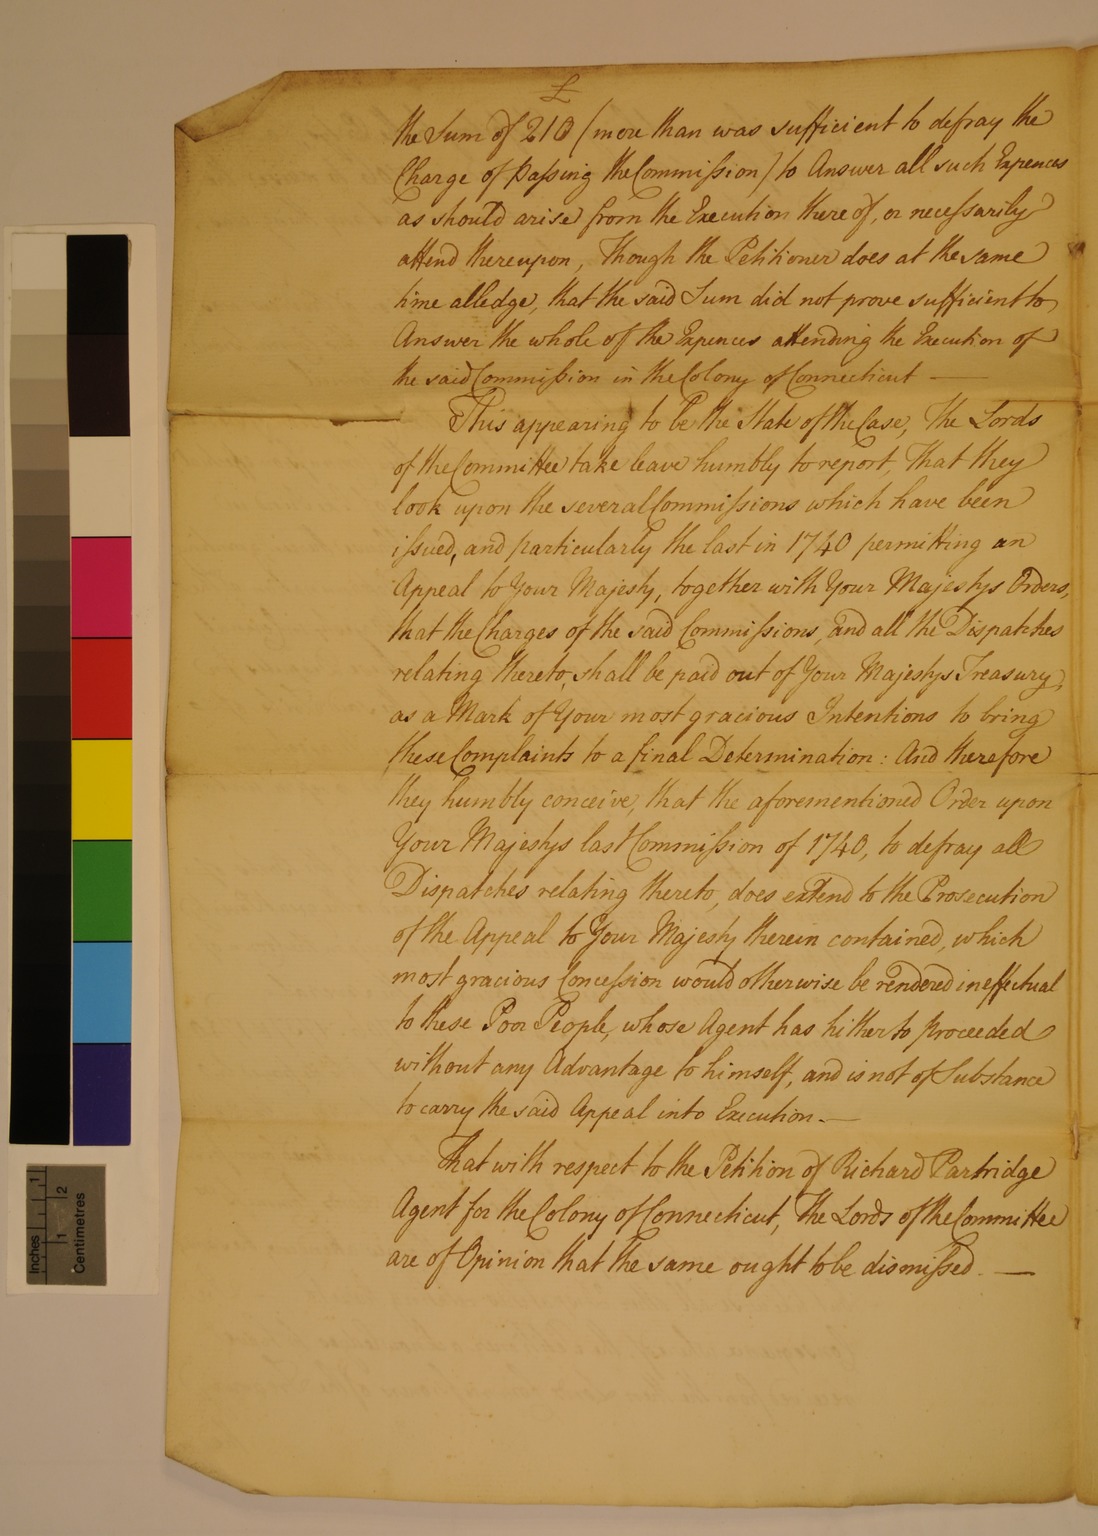 £
the Sum of 210 (more than was sufficient to defray the
Charge of passing the Commission) to Answer all such Expences
as should arise from the Execution there of, or necessarily
attend thereupon, Though the Petitioner does at the same
time alledge, that the said Sum did not prove sufficient to
Answer the whole of the Expences attending the Execution of
the said Commission in the Colony of Connecticut —
This appearing to be the State of the Case, The Lords
of the Committee take leave humbly to report, That they
look upon the several Commissions which have been
issued, and particularly the last in 1740 permitting an
Appeal to Your Majesty, together with Your Majestys Orders,
that the Charges of the said Commissions, and all the Dispatches
relating thereto, shall be paid out of Your Majestys Treasury,
as a Mark of Your most gracious Intentions to bring
these Complaints to a final Determination: And therefore
they humbly conceive, that the aforementioned Order upon
Your Majestys last Commission of 1740, to defray all
Dispatches relating thereto, does extend to the Prosecution
of the Appeal to Your Majesty therein contained, which
most gracious Concession would otherwise be rendered ineffectual
to these Poor People, whose Agent has hitherto proceeded
without any Advantage to himself, and is not of Substance
to carry the said Appeal into Execution. —
That with respect to the Petition of Richard Partridge
Agent for the Colony of Connecticut, The Lords of the Committee
are of Opinion that the same ought to be dismissed. —
Inches
1
2
1
Centimetres